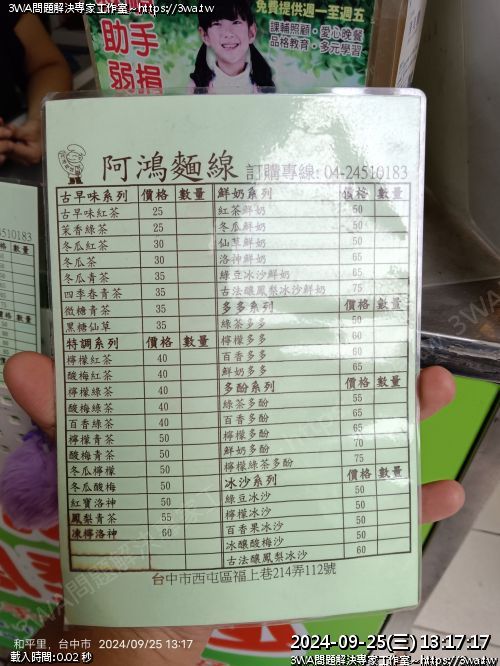 3WA問題解決專家工作室~https://3wa.tw
3WA問題解決專家工作室~https://3wa.tw
助手
弱捐
免費提供週一至週五
課輔照顧・愛心晚餐
品格教育・多元學習
阿鴻麵線 訂購專線: 04-24510183
古早味系列 價格 數量
古早味紅茶 25
茉香綠茶 25
冬瓜紅茶 30
冬瓜茶 30
冬瓜青茶 35
四季春青茶 35
微糖青茶 35
黑糖仙草 35
特調系列 價格 數量
檸檬紅茶 40
酸梅紅茶 40
檸檬綠茶 40
酸梅綠茶 40
百香綠茶 40
檸檬青茶 50
酸梅青茶 50
冬瓜檸檬 50
冬瓜酸梅 50
紅寶洛神 50
鳳梨青茶 55
凍檸洛神 60
鮮奶系列 價格 數量
紅茶鮮奶 50
冬瓜鮮奶 50
仙草鮮奶 50
洛神鮮奶 65
綠豆冰沙鮮奶 65
古法釀鳳梨冰沙鮮奶 75
多多系列 價格 數量
綠茶多多 50
檸檬多多 60
百香多多 65
鮮奶多多 65
多酚系列 價格 數量
綠茶多酚 55
百香多酚 65
檸檬多酚 65
鮮奶多酚 70
檸檬綠茶多酚 75
冰沙系列 價格 數量
綠豆冰沙 50
檸檬冰沙 50
百香果冰沙 50
冰釀酸梅沙 50
古法釀鳳梨冰沙 60
台中市西屯區福上巷214弄112號
4510183
格 數量
和平里, 台中市 2024/09/25 13:17
2024-09-25(三) 13:17:17
載入時間:0.02 秒
3WA問題解決專家工作室~https://3wa.tw